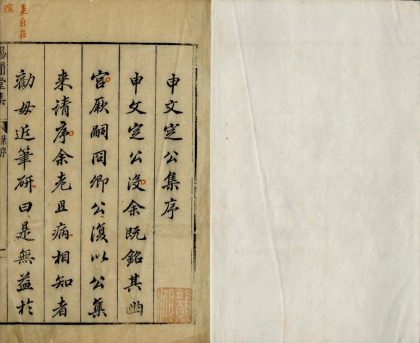 申文定公集序
申文定公沒余既銘其幽
宮厥嗣冏卿公復以公集
来請序余老且病相知者
勸毋近筆研曰是無益於
賜閒堂集